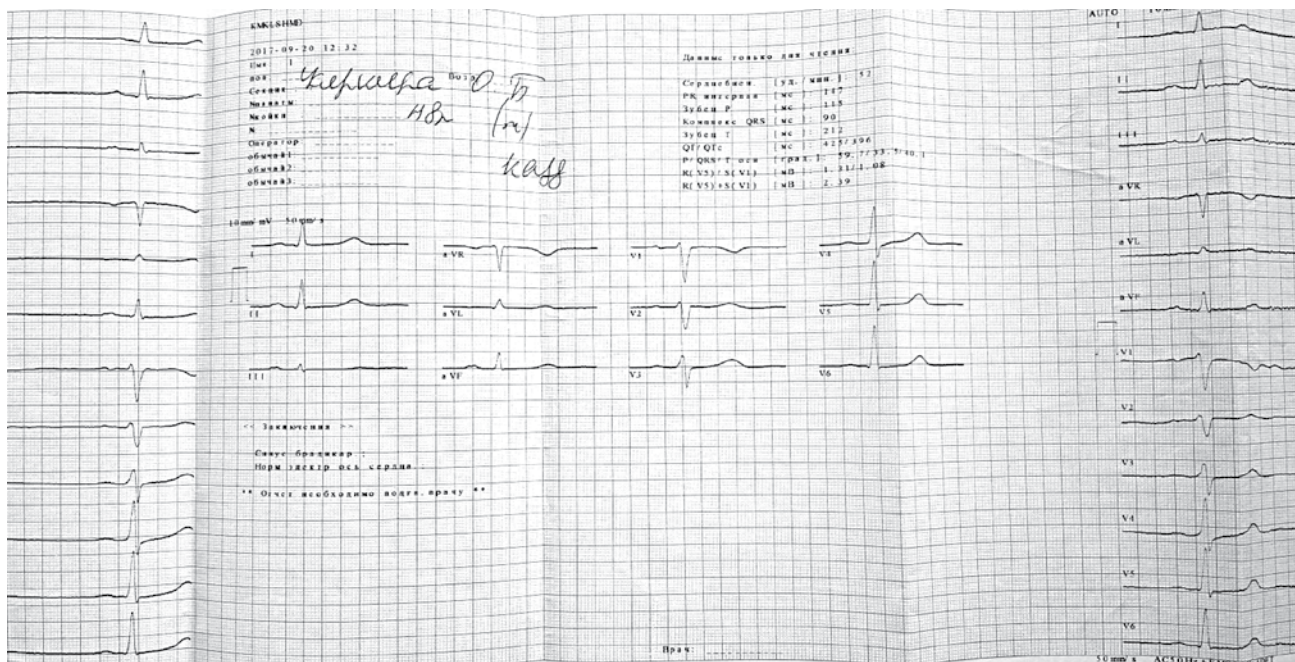 KMKLSHMD
2017-09-20 12:32
Имя: 1
пол:
Секция:
№кнаты
№койки
N
Оператор
обычай1:
обычай2:
обычай3:
Возр
О. Б
48л
10 mm/mV 50 mm/s
Данные только для чтения:
Сердцебиен. [уд./мин.]: 52
PR интервал [мс]: 147
Зубец P [мс]: 115
Комплекс QRS [мс]: 90
Зубец T [мс]: 212
QT/QTc [мс]: 425/396
P/QRS/T оси [град.]: 59.7/33.5/40.1
R(V5)/S(V1) [мВ]: 1.31/1.08
R(V5)+S(V1) [мВ]: 2.39
I
a VR
V1
V4
II
a VL
V2
V5
III
a VF
V3
V6
<< Заключения >>
Синус брадикар :
Норм электр ось сердца.:
** Отчет необходимо подтв. врачу **
Врач:
AUTO
I
II
III
a VR
a VL
a VF
V1
V2
V3
V4
V5
V6
50 mm/s